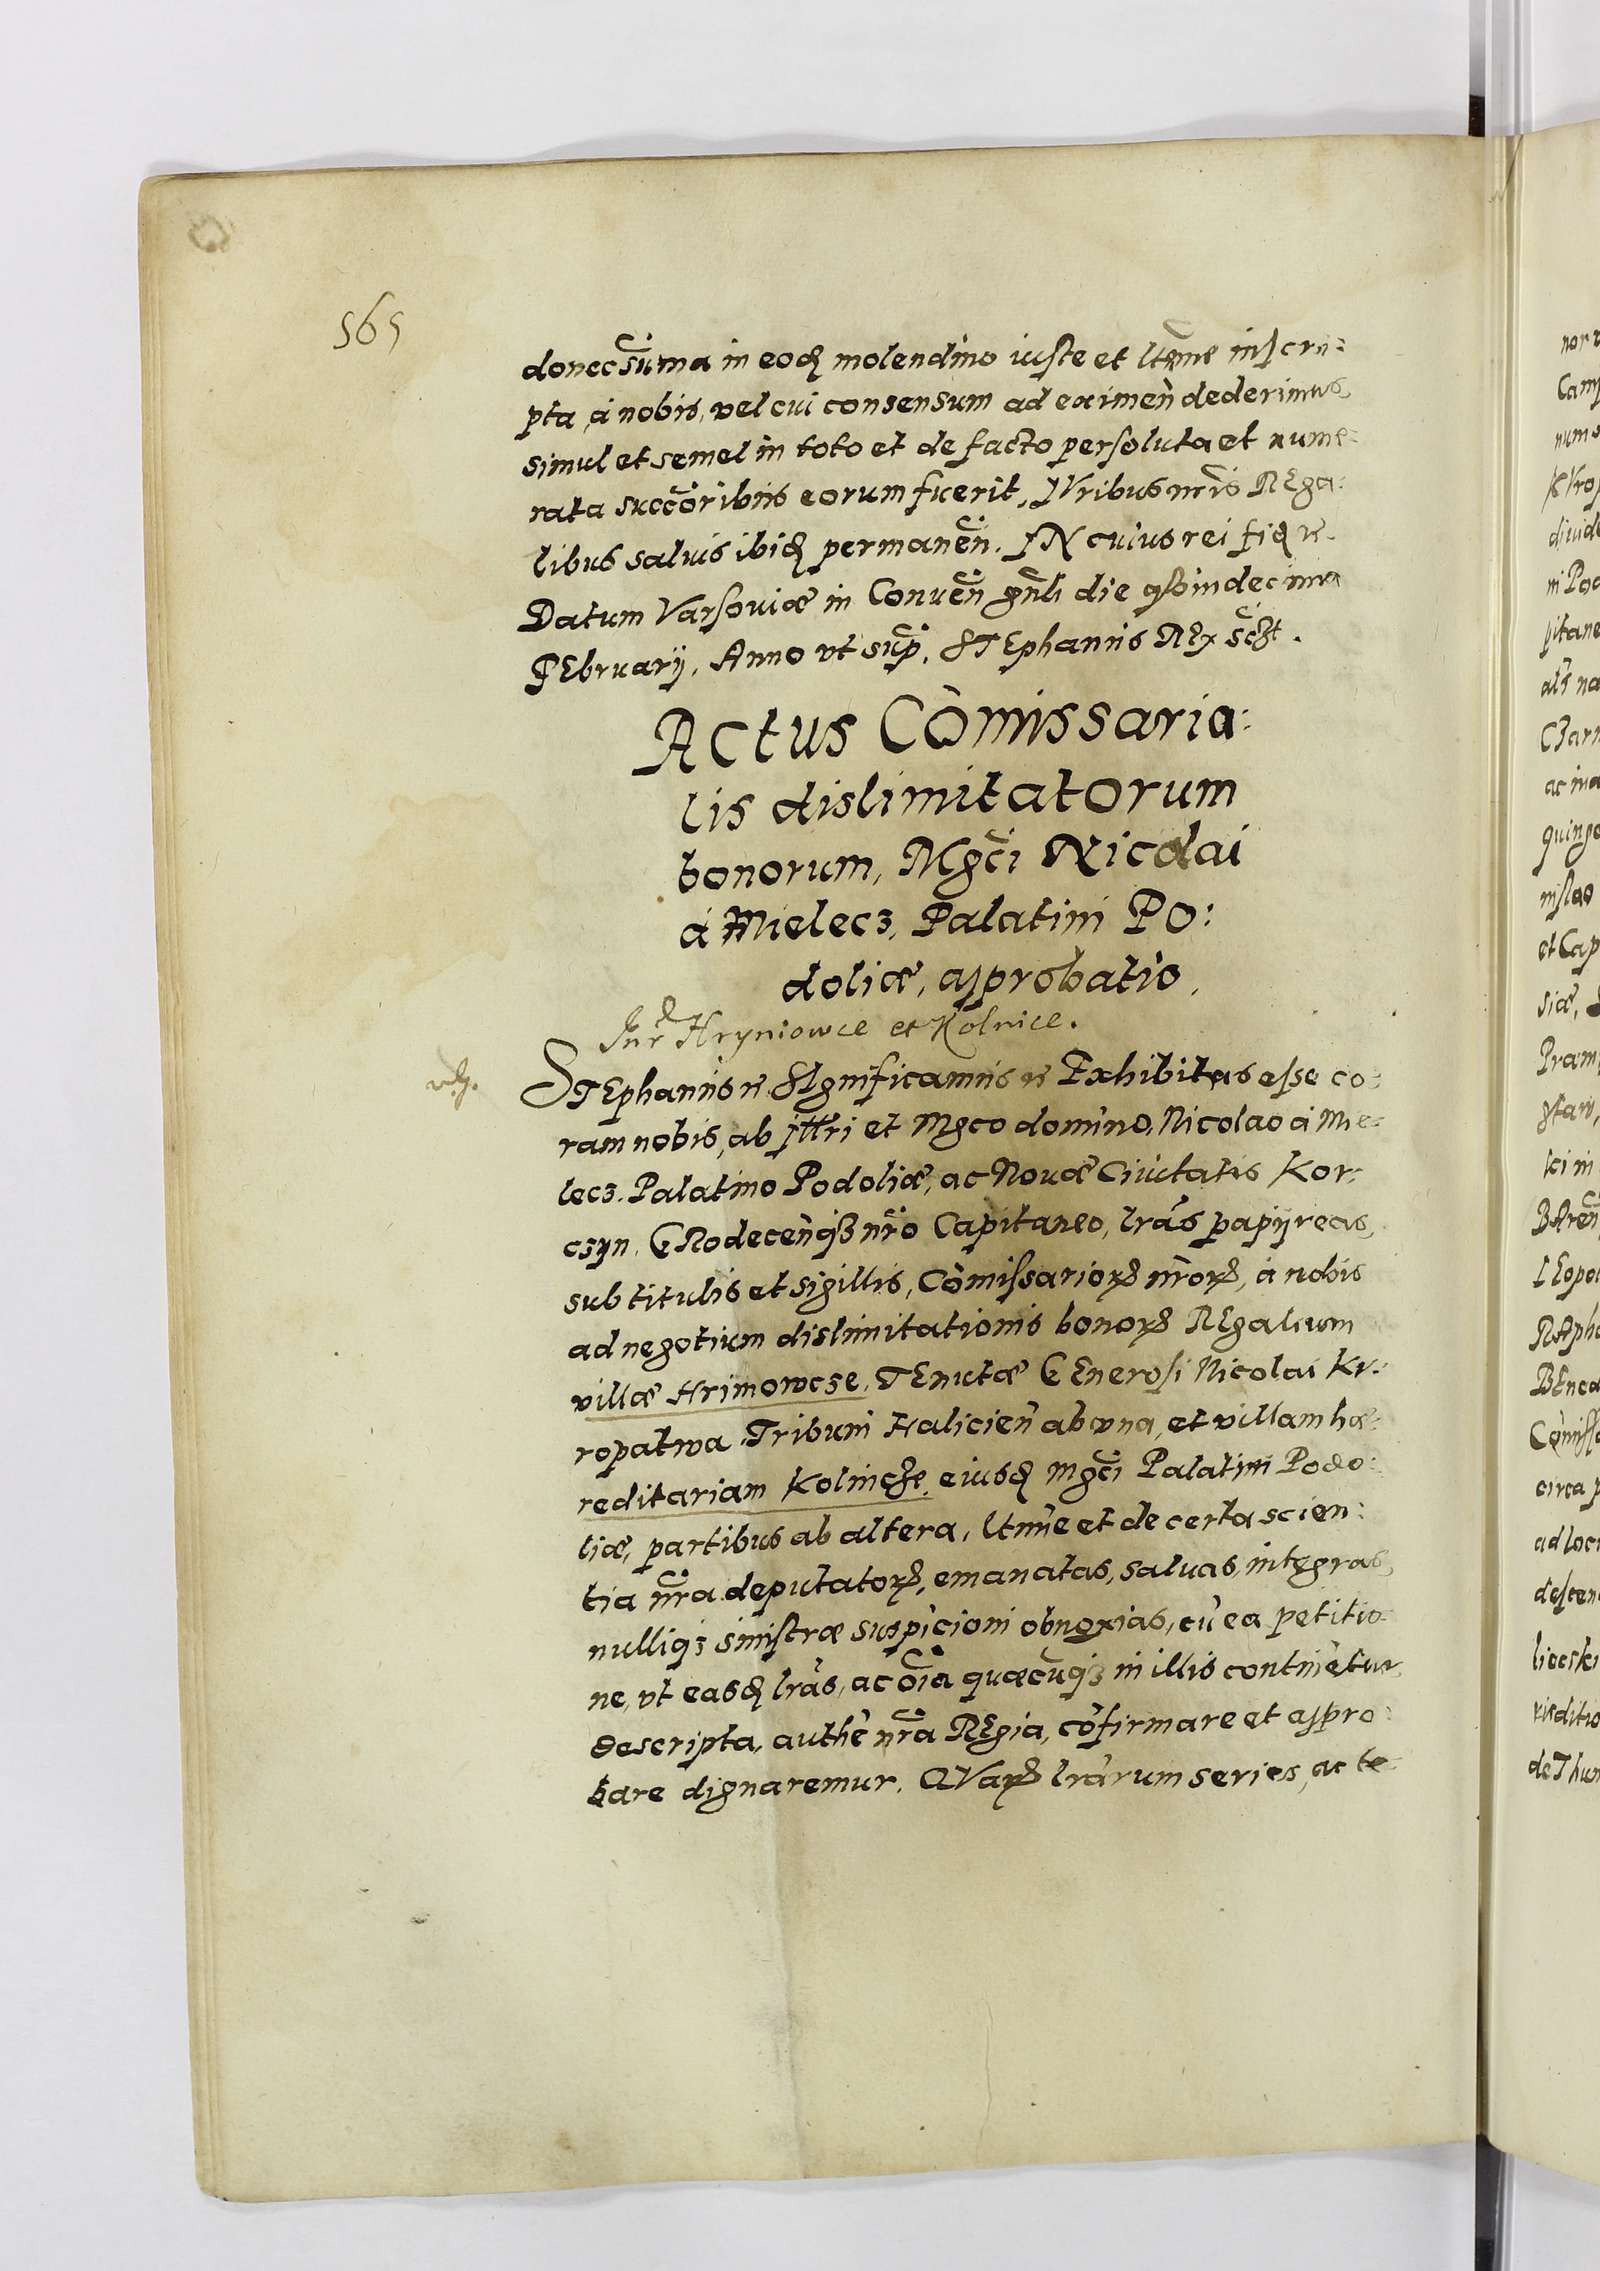 565
donec su͠ma in eod molendino iuste et ltime inscri:
pta, à nobis, vel cui consensum ad eximen̄ dederimus,
simul et semel in toto et de facto persoluta et nume:
rata succōribus eorum fuerit, IVribus nr̄is REga:
libus saluis ibid permanēn. IN cuius rei fid rc.
Datum Varsouiæ in Conuēn gn̄li die quindecima
FEbruarij. Anno vt sup̄. STEphanus REx sc̄zt.
ACtus Cōmissaria:
lis dislimitatorum
bonorum, Mgc̄i Nicolai
à Mielecz, Palatini PO:
doliæ, approbatio.
Inr Hryniowce et Kolnice.
STEphanus rc SIgnificamus rc Exhibitas esse co:
ram nobis, ab Illri et Mgco domino, Nicolao à Mie:
lecz. Palatino Podoliæ, ac Nouæ Ciuitatis Kor:
czyn, GRodecēnqз nr̄o Capitaneo, lrās papijreas,
sub titulis et sigillis, Cōmissarioꝝ nr̄oꝝ, à nobis
ad negotium dislimitationis bonoꝝ REgalium
villæ Hrimowcze, TEnutæ GEnerosi Nicolai Ku:
ropatwa Tribuni Haliciēn ab vna, et villam hæ:
reditariam Kolincze, eiusd Mgc̄i Palatini Podo:
liæ, partibus ab altera, ltime et de certa scien:
tia nr̄a deputatoꝝ, emanatas, saluas, integras,
nulliqз sinistræ suspicioni obnoxias, cū ea petitio:
ne, vt easd lrās, ac oīa quæcūqз in illis continētur
descripta, authē nr̄a REgia, cōfirmare et appro:
bare dignaremur. QVaꝝ lrārum series, ac te: